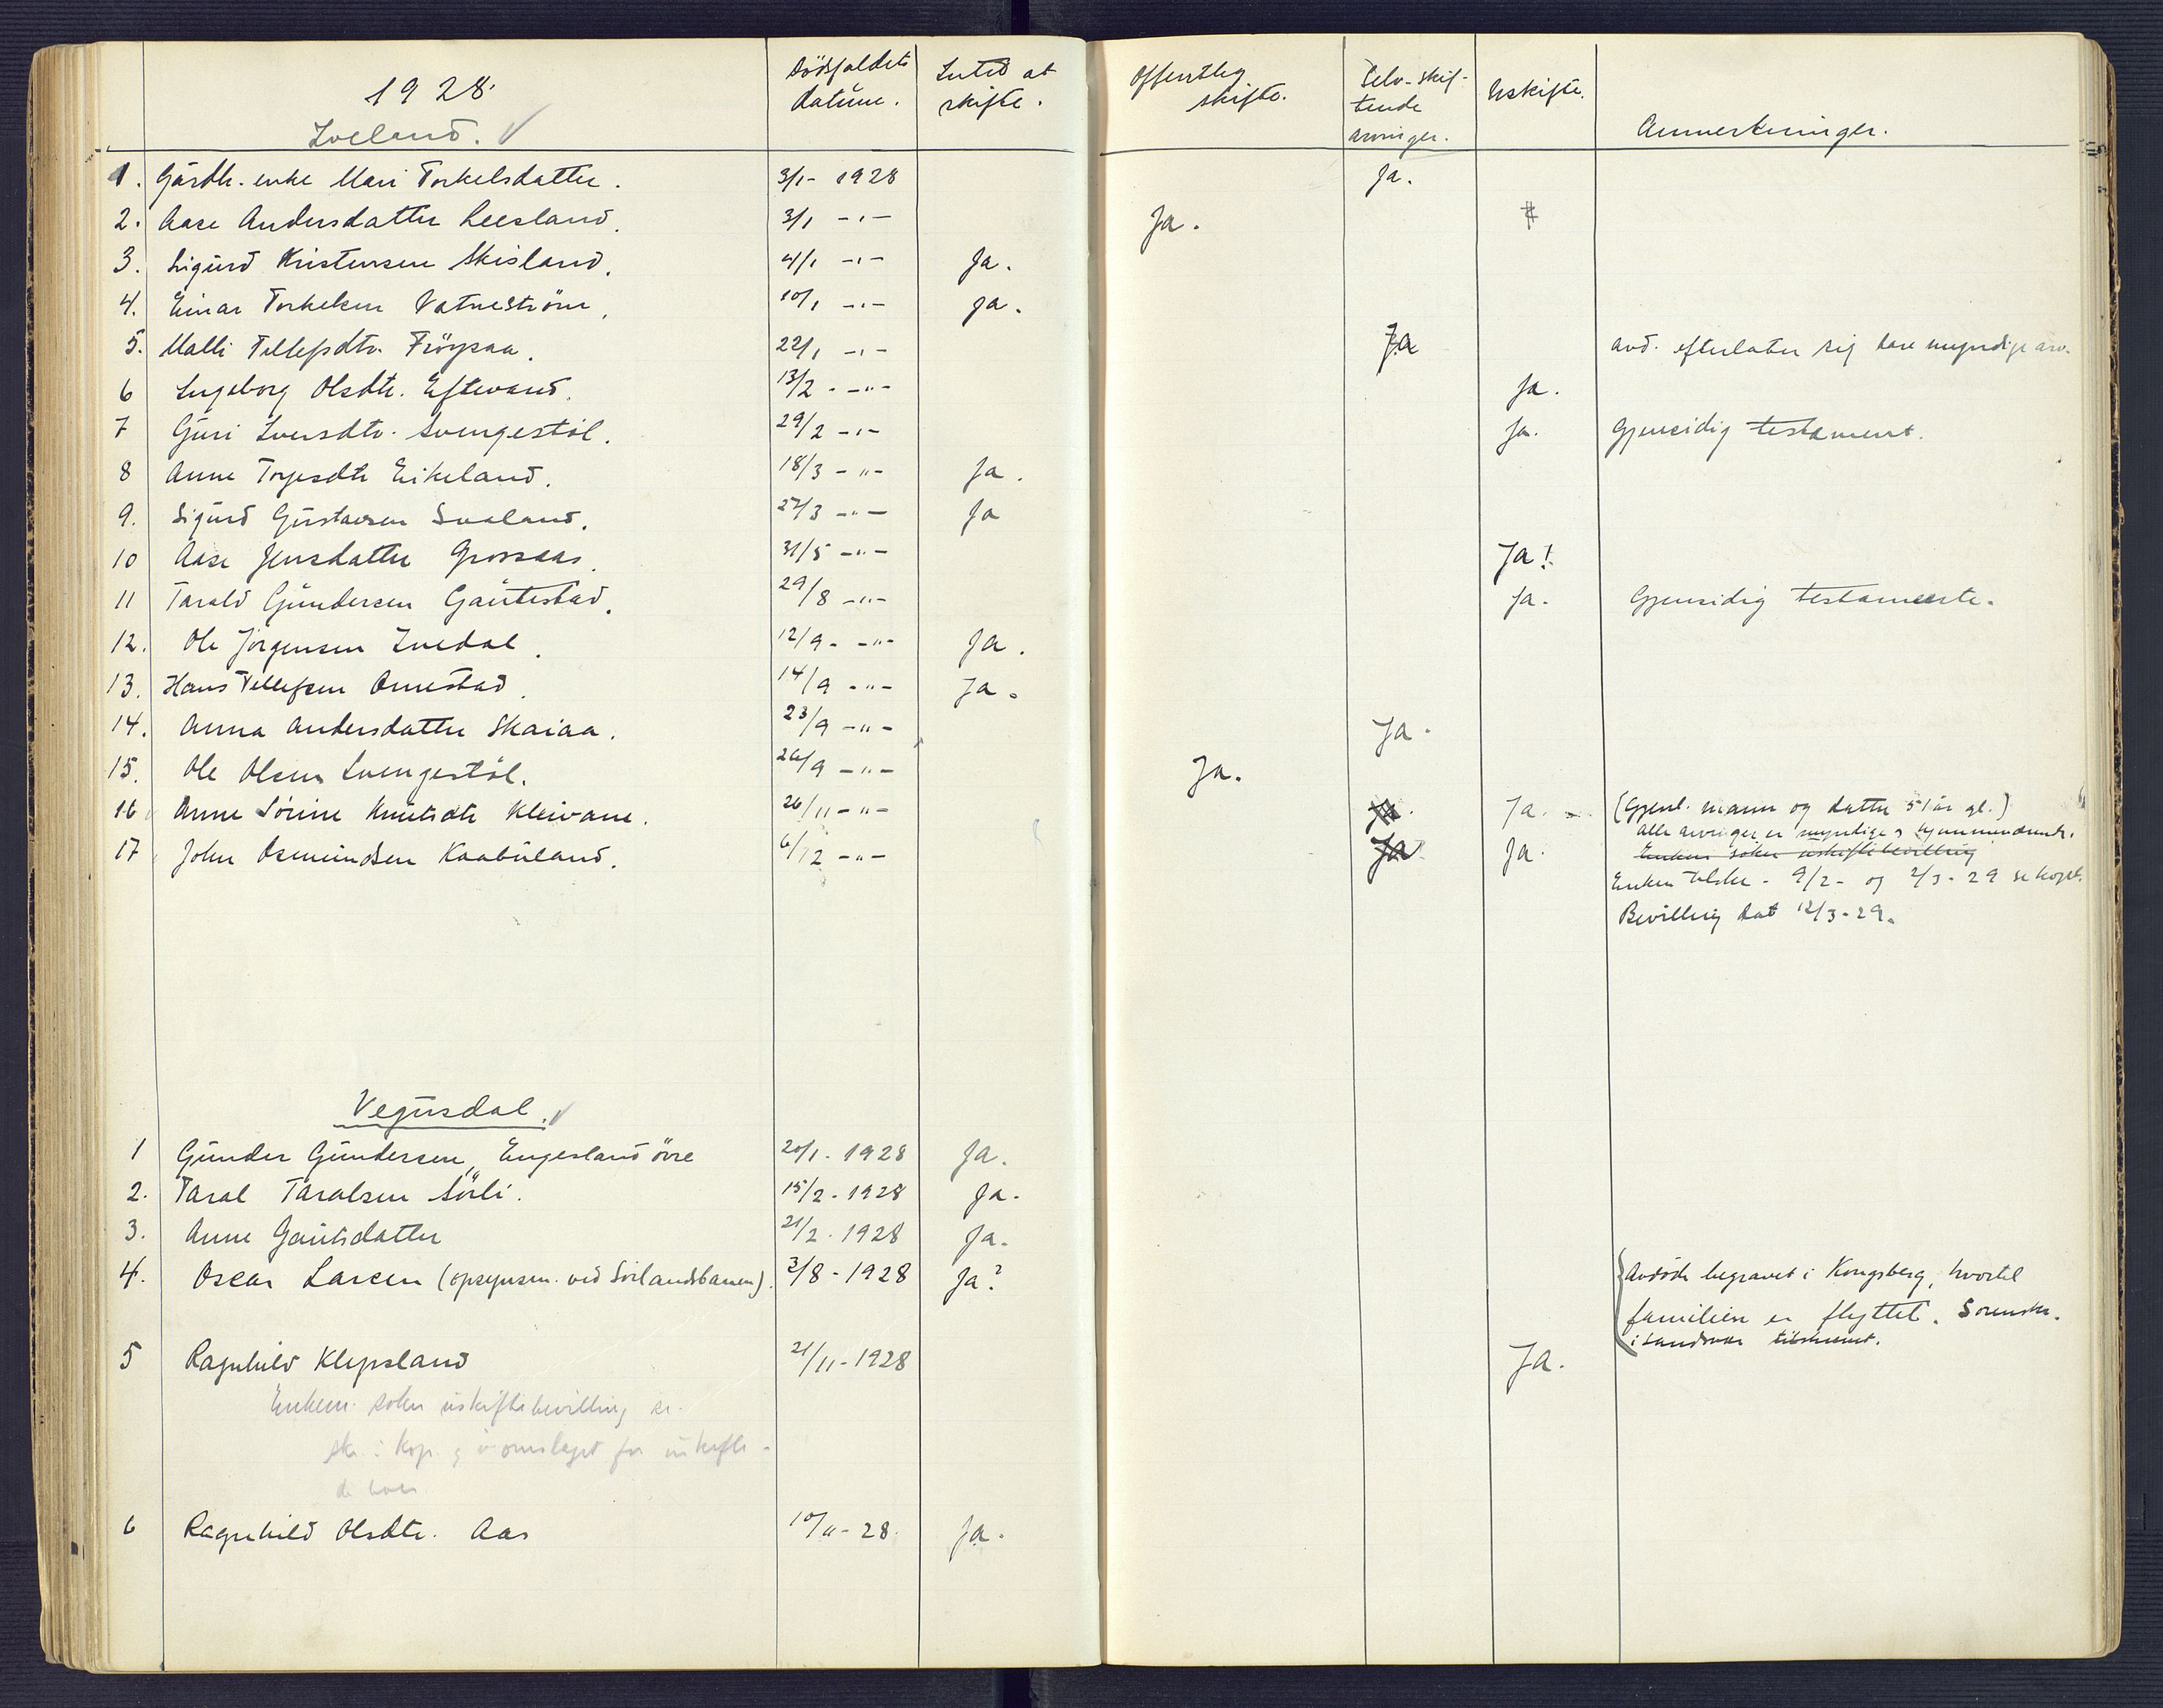 1928.
Iveland. V
Dödsfaldets datum.
Intet at skifte.
Offentlig skifte.
Selv-skiftende arvinger.
Uskifte.
Anmerkninger.
1. Gårdb. enke Mari Torkelsdatter. 3/1- 1928 Ja.
2. Aase Andersdatter Leesland. 3/1 -"- Ja.
3. Sigurd Kristensen Skisland. 4/1 -"- Ja.
4. Einar Torkelsen Vatneström. 10/1 -"- Ja.
5. Malli Tellefsdtr. Fröysaa. 22/1 -"- Ja avd. efterlater sig bare myndige arv.
6 Ingeborg Olsdtr. Eftevand. 13/2 - -"- Ja.
7 Guri Iversdtr. Svengestöl. 29/2 -"- Ja. Gjensidig testament.
8 Anne Torjesdtr Eikeland. 18/3 -"- Ja.
9. Sigurd Gustavsen Sualand. 27/3 -"- Ja
10 Aase Jensdatter Grossaas. 31/5 -"- Ja!
11 Tarald Gundersen Gautestad. 29/8 -"- Ja. Gjensidig testamente.
12. Ole Jörgensen Ivedal. 12/9 - -"- Ja.
13. Hans Tellefsen Omestad. 14/9 -"- Ja.
14. Anna Andersdatter Skaiaa. 23/9 -"- Ja.
15. Ole Olsen Svengestöl. 26/9 -"- Ja.
16 Anne Sörine Knutsdtr Kleivane. 26/11 -"- Ja. Ja. - (Gjenl. mann og datter 51 år gl.)
alle arvinger er myndige &
17 John Osmundsen Kaabuland. 6/12 -"- Ja Ja. Enken söker uskiftebevilling
Enken tilskr. 9/2- og 2/3-29 se kopib.
Bevilling dat 12/3-29.
Vegusdal. V
1 Gunder Gundersen, Engesland övre 20/1. 1928 Ja.
2. Taral Taralsen Sörli. 15/2. 1928 Ja.
3. Anne Gautsdatter 21/2. 1928 Ja.
4. Oscar Larsen (opsynsm. ved Sörlandsbanen). 3/8 - 1928 Ja? Avdöde begravet i Kongsberg, hvortil
familien er flyttet. Sorenskr.
i Sandsvær tilskrevet.
5 Ragnhild Klepsland 21/11-1928 Ja.
Enkem. söker uskiftebevilling se
skr. i kop. & i omslaget for uskifte-
de boer
6 Ragnhild Olsdtr. Aas 10/11-28. Ja.